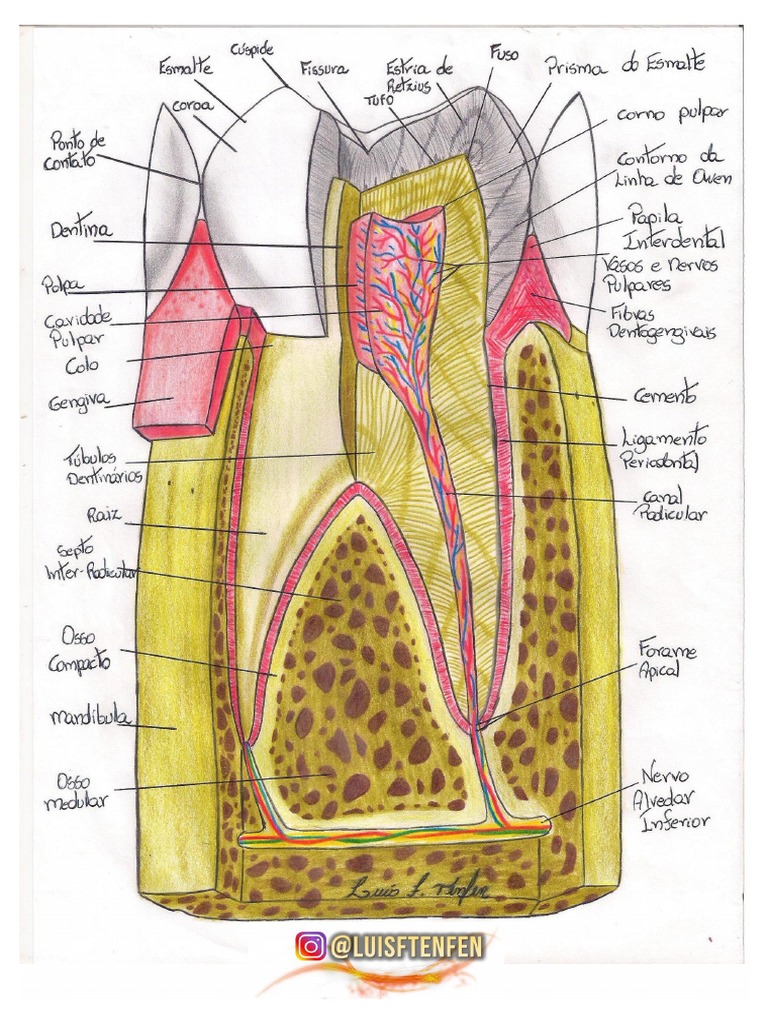 Cúspide
Esmalte
Fissura
Estria de
Retzius
Fuso
Prisma do Esmalte
coroa
TUFO
corno pulpar
Ponto de
Contato
Contorno da
Linha de Owen
Dentina
Papila
Interdental
Polpa
Vasos e Nervos
Pulpares
Cavidade
Pulpar
Fibras
Dentogengivais
Colo
Gengiva
Cemento
Ligamento
Periodontal
Túbulos
Dentinários
Canal
Radicular
Raiz
Septo
Inter-Radicular
Osso
Compacto
Forame
Apical
Mandíbula
Osso
Medular
Nervo
Alveolar
Inferior
Luis F. Tenfen
@LUISFTENFEN